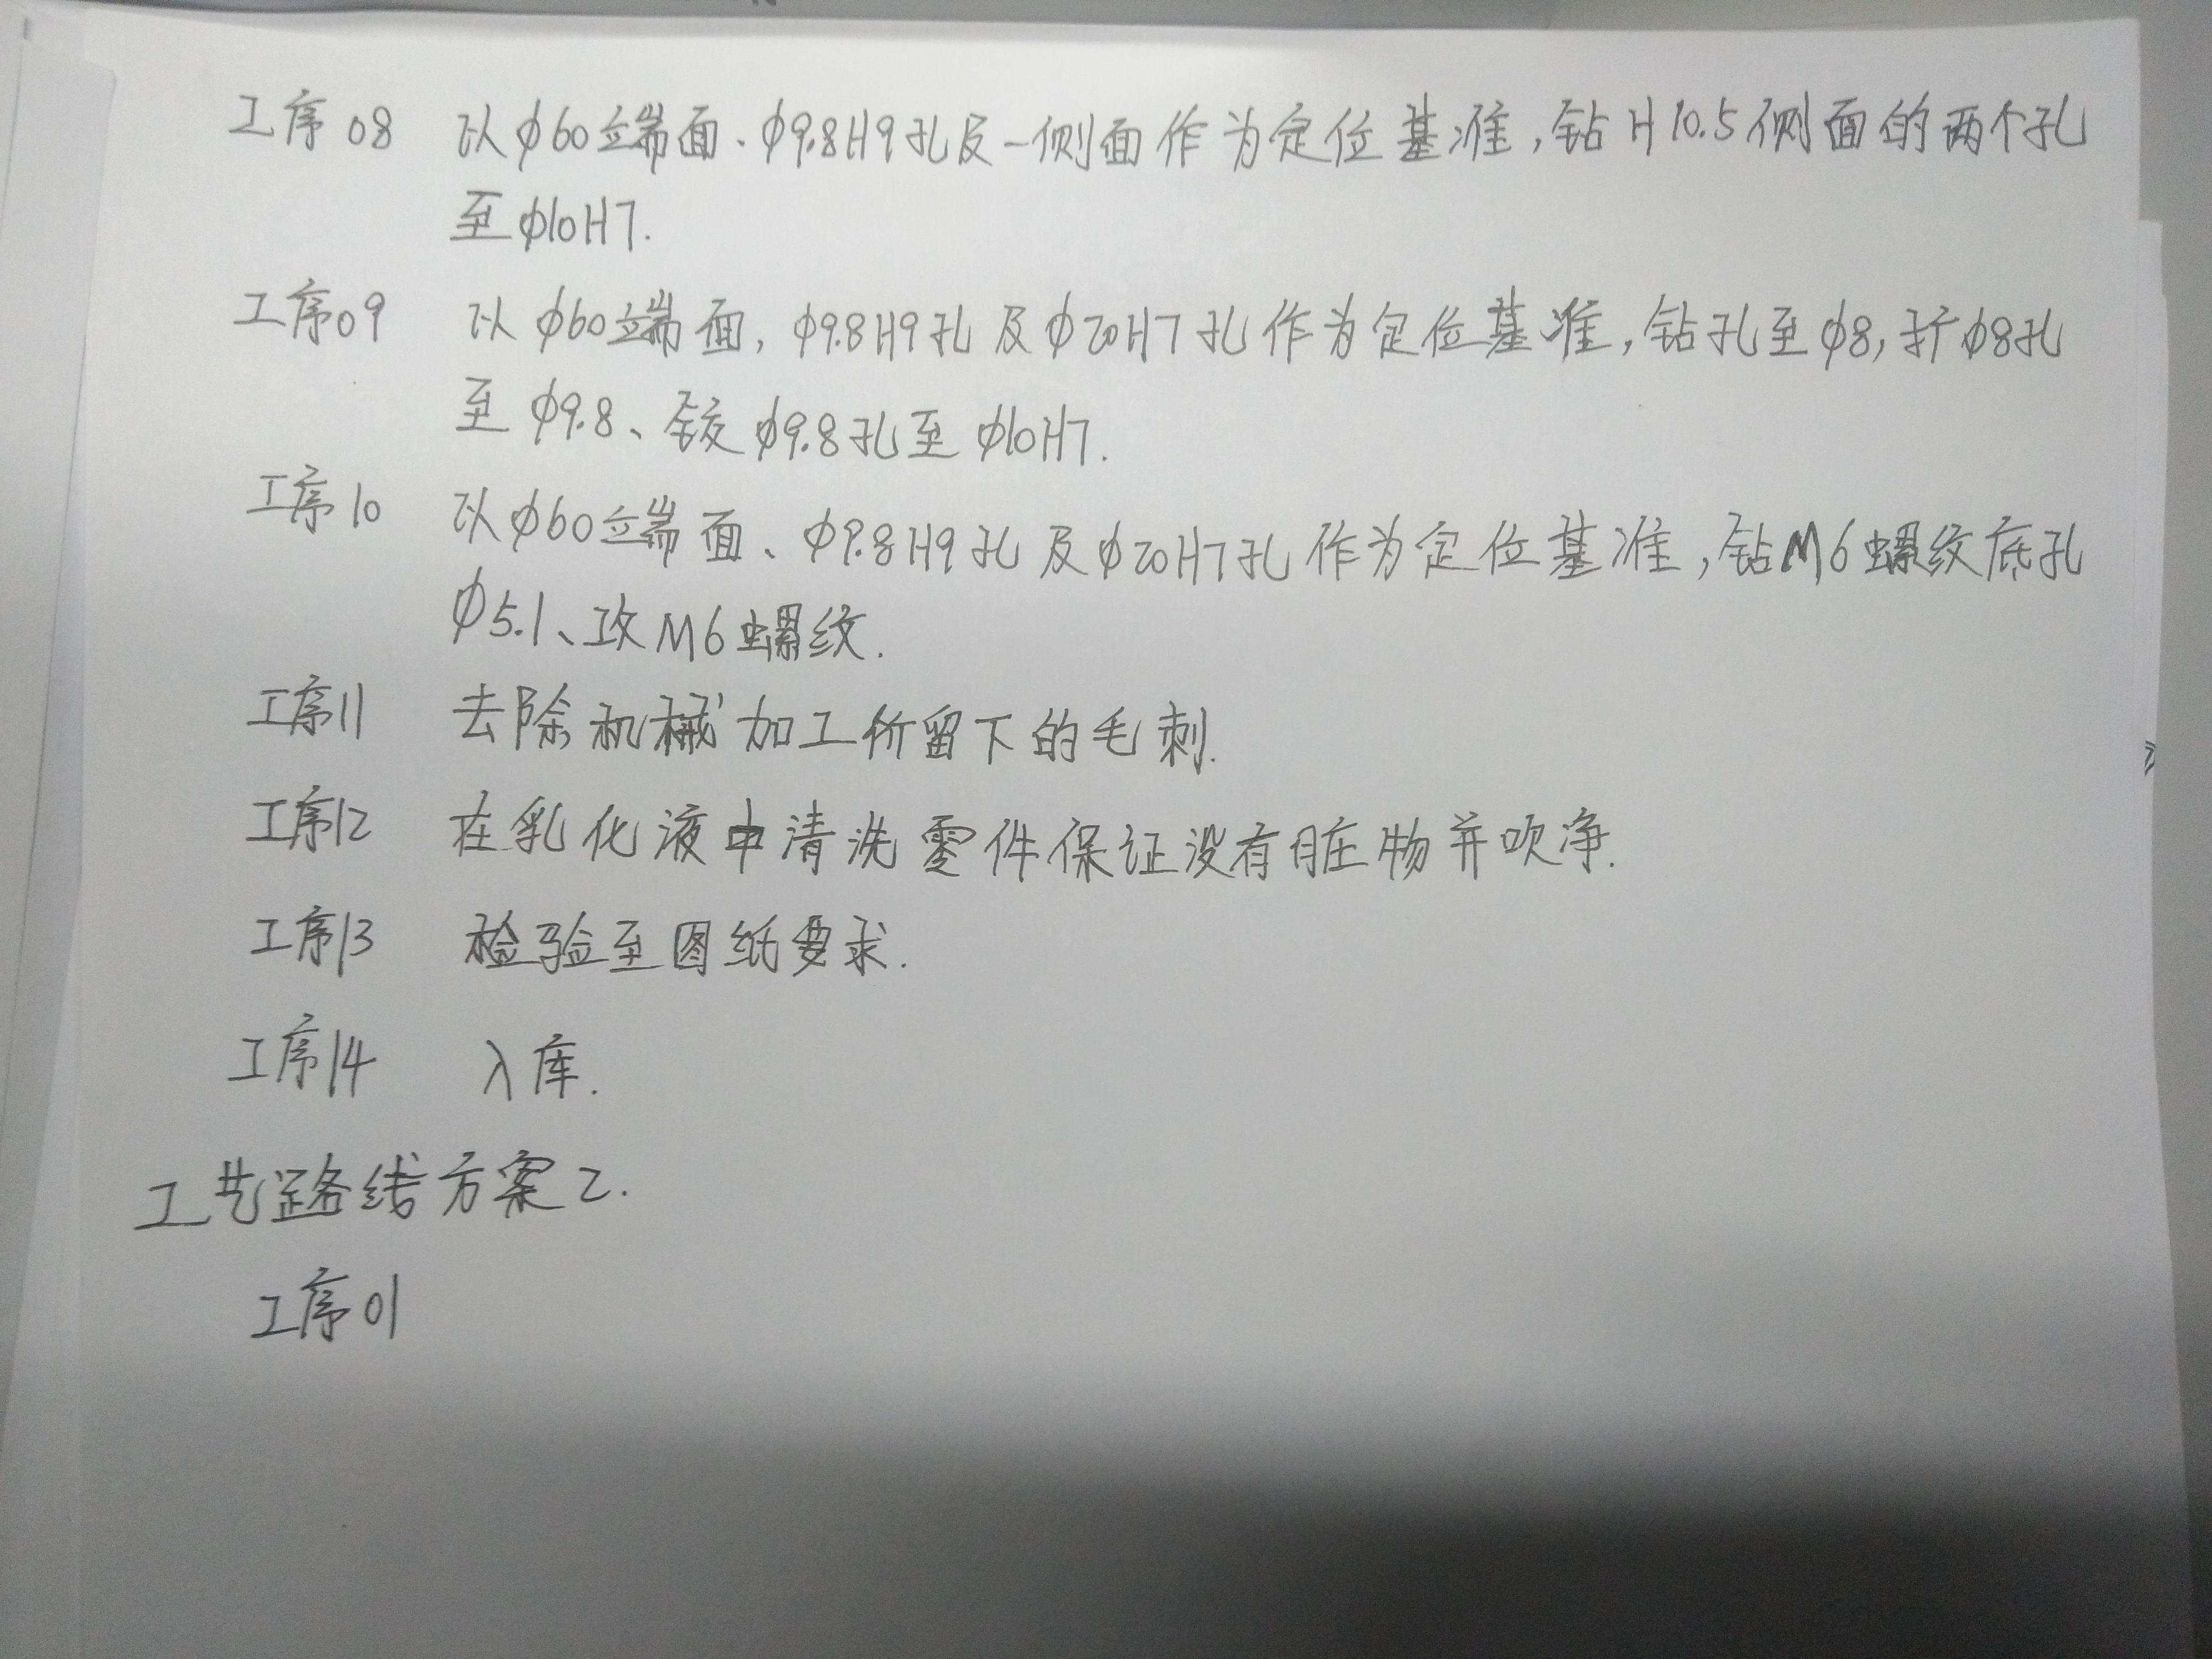 工序08 以φ60端面、φ9.8H9孔及一侧面作为定位基准,钻H10.5侧面的两个孔
至φ10H7.
工序09 以φ60端面,φ9.8H9孔及φ20H7孔作为定位基准,钻孔至φ8,扩φ8孔
至φ9.8、铰φ9.8孔至φ10H7.
工序10 以φ60端面、φ9.8H9孔及φ20H7孔作为定位基准,钻M6螺纹底孔
φ5.1、攻M6螺纹.
工序11 去除机械加工所留下的毛刺.
工序12 在乳化液中清洗零件保证没有脏物并吹净.
工序13 检验至图纸要求.
工序14 入库.
工艺路线方案2.
工序01